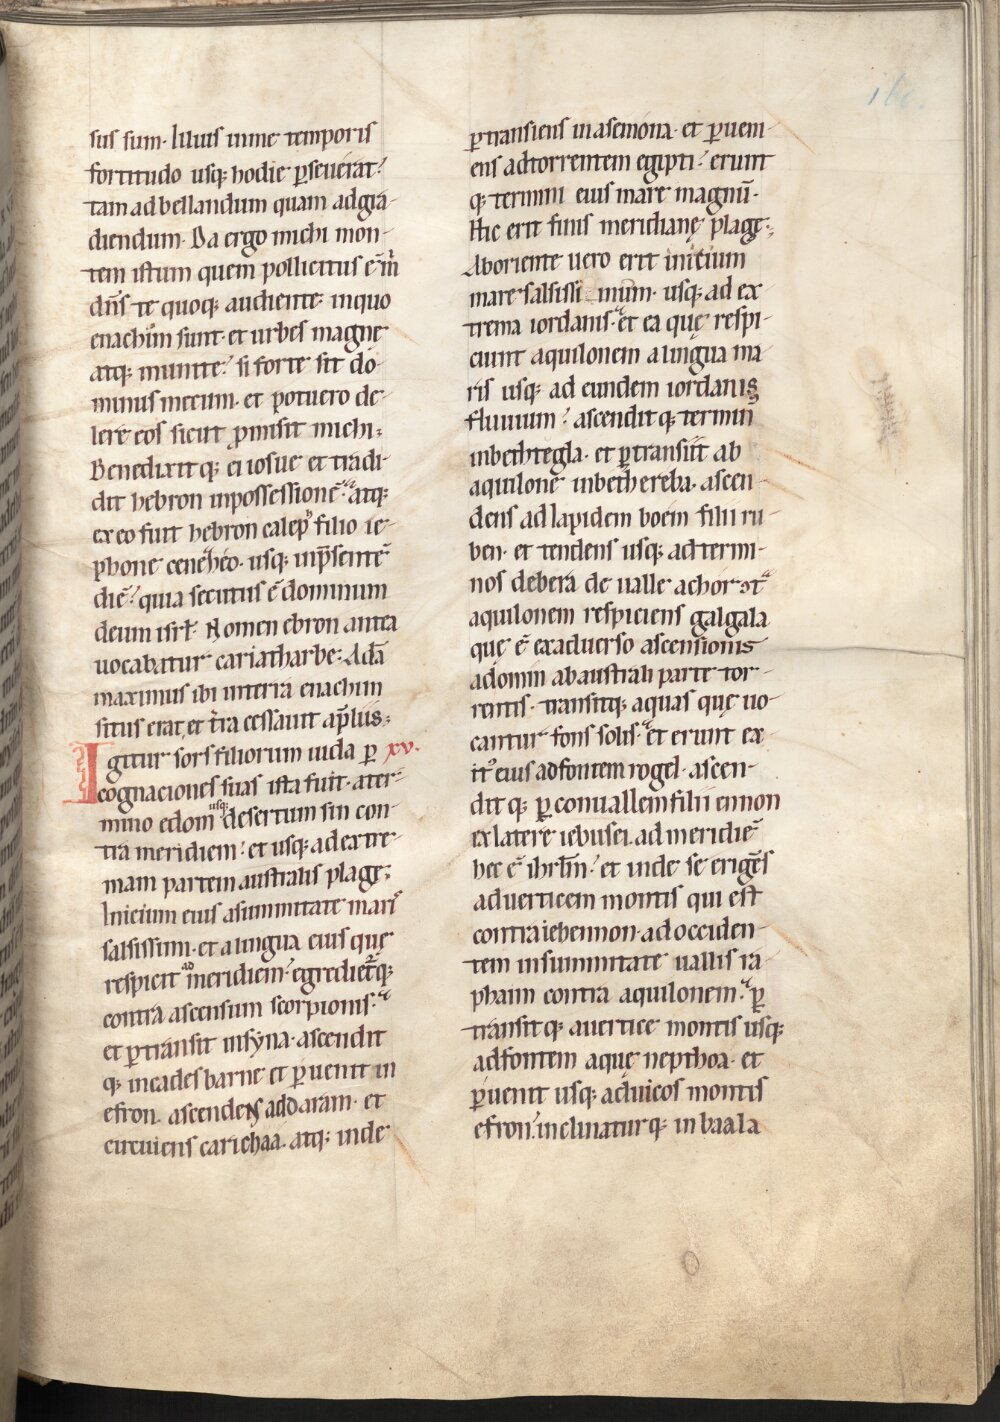 sus sum. Illius inme temporis
fortitudo usq; hodie pseuerat?
tam ad bellandum quam ad gra-
diendum. Da ergo michi mon-
tem istum quem pollicitus ē m̄
dn̄s te quoq; audiente: inquo
enachim sunt. et urbes magnę
atq; munite? si forte sit do-
minus mecum. et potuero de-
lere eos sicut promisit michi;
Benedixitq; ei iosue et tradi-
dit hebron inpossessionē. atq;
ex eo fuit hebron caleph filio ie-
phone ceneheo. usq; inp̄sentē
diē? quia secutus ē dominum
deum isrł. Nomen ebron antea
uocabatur cariatharbe: Adā
maximus ibi interra enachim
situs erat. et t̄ra cessauit ap̄liis;
Igitur sors filiorum iuda p xv.
cognaciones suas ista fuit. ater-
mino edom usq; desertum sin con-
tra meridiem? et usq; ad extre-
mam partem australis plagę;
Inicium eius asummitate maris
salsissim. et a lingua eius quę
respicit ad meridiem? egrediet̄q;
contra ascensum scorpionis.
et ptransit insyna. ascendit
q; incadesbarne et puenit in
efron. ascendens addaram. et
circuiens carichaa. atq; inde
ptransiens in asemona. et pueni-
ens ad torrentem egipti? erunt
q; termini eius mare magnū.
Hic erit finis meridianę plagę;
Aboriente uero erit inicium
mare salsissi mum. usq; ad ex
trema iordanis. et ea quę respi-
ciunt aquilonem a lingua ma-
ris usq; ad eundem iordanis
fluuium? ascenditq; termin̄
inbethtegla. et ptransiit ab
aquilone inbethereba. ascen-
dens ad lapidem boem filii ru-
ben. et tendens usq; ad termi-
nos debera de ualle achor. ɔt̄
aquilonem respiciens galgala
quę ē exaduerso ascensionis
adomin ab australi parte tor-
rentis. transitq; aquas quę uo-
cantur fons solis. et erunt ex-
it᾽ eius ad fontem rogel. ascen-
dit q; p conuallem filii ennon
ex latere iebusei. ad meridiē
hec ē ihrłm? et inde se erigēs
aduerticem montis qui est
contra iehennon. ad occiden-
tem insummitate uallis ra-
phaim contra aquilonem. p
transitq; auertice montis usq;
adfontem aquę nepthoa. et
puenit usq; aduicos montis
efron. inclinaturq; in baala